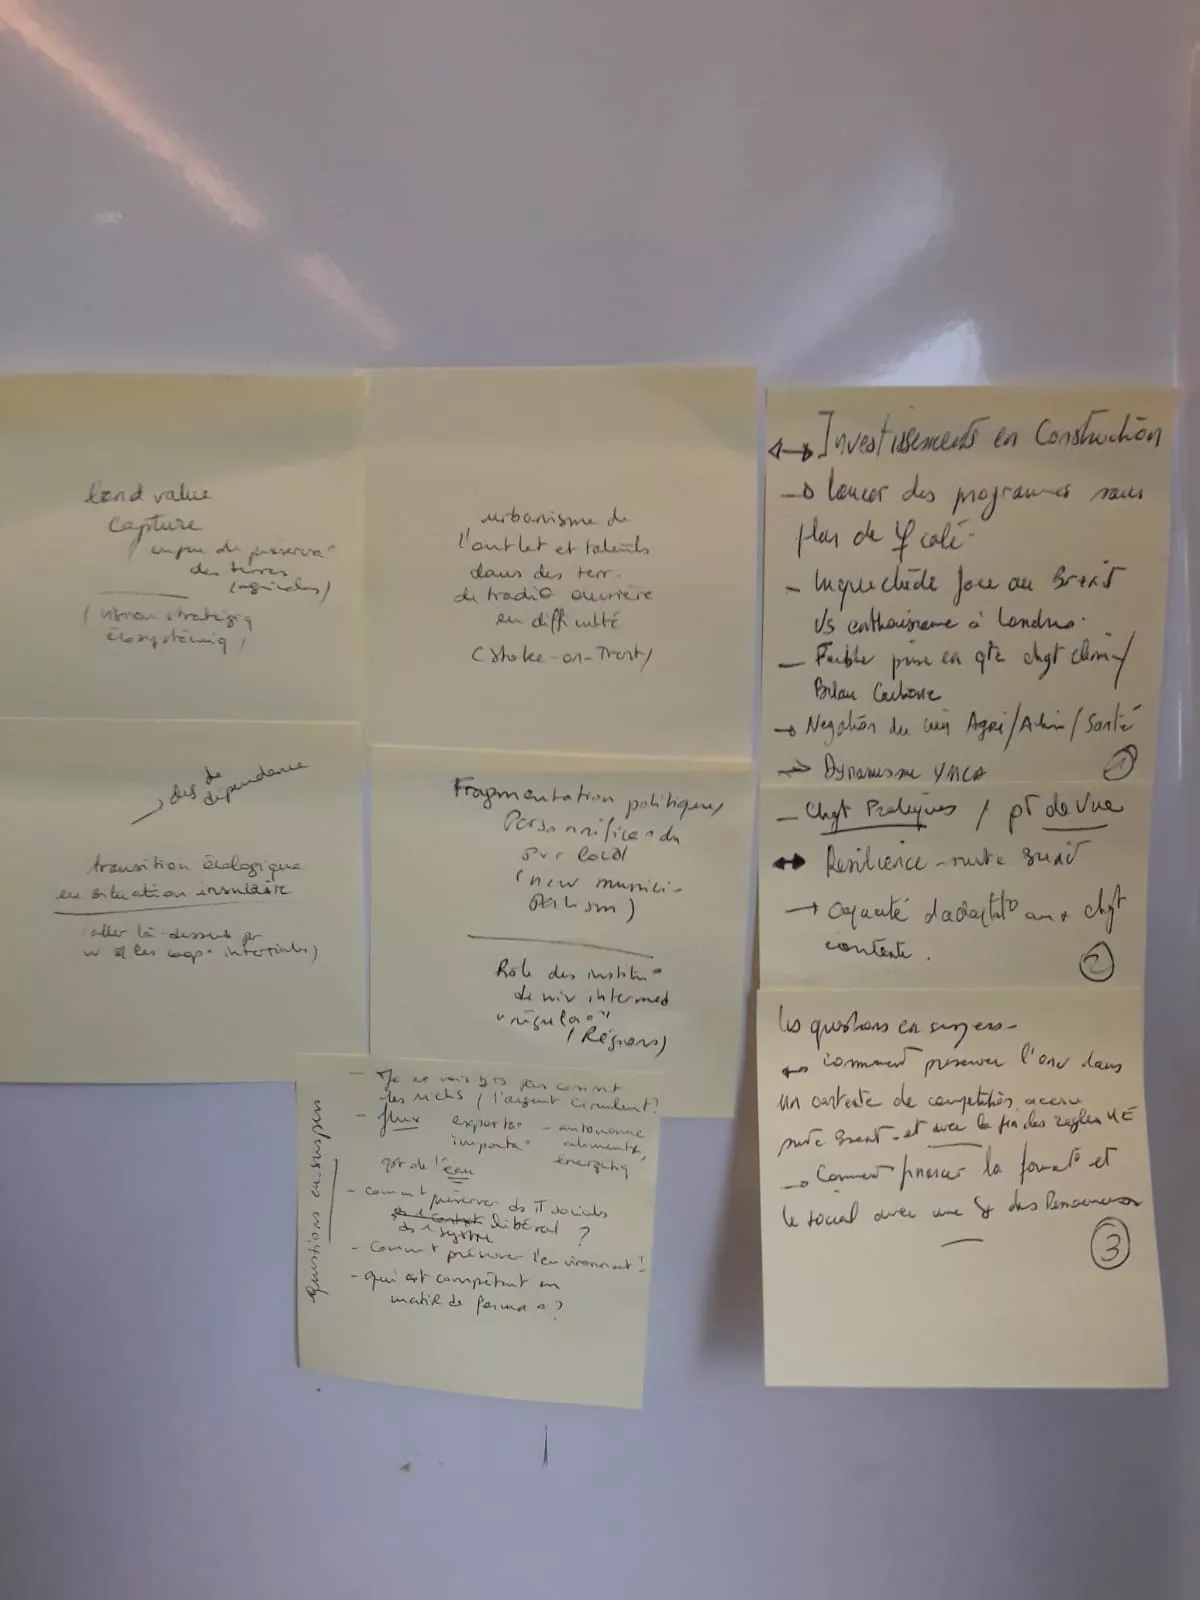 land value
capture
des terres
agricoles)
(vision stratégiq
écosystémiq)
urbanisme de
l'outlet et talents
dans des terr.
de tradi° ouvrière
en difficulté
(Stoke-on-Trent)
→ des de
dépendance
transition écologique
en situation insulaire
(aller là-dessus pr
Fragmentation politique/
Personnifica° du
pvr local
(new munici-
palism)
Rôle des institu°
de niv intermed
"régula°"
(Régions)
questions en suspens
- Je ne vois tjrs pas comment
les riches / l'argent circulent?
- flux exporta° - autonomie
importa° alimentR,
énergétiq
gst de l'eau
- comm^t préserver des
libéral ?
système
- comm^t préserver l'environnem^t?
- qui est compétent en
matiR de forma°?
↔ Investissements en Construction
→ lancer des programmes sans
plan de calé.
- Inquiétude face au Brexit
VS enthousiasme à Londres.
- Faible prise en cpte chgt clim/
Bilan Carbone
→ Négation du lien Agri/Alim/Santé
→ Dynamisme YMCA
1
- Chgt Pratiques / pt de vue
↔ Résilience - suite Brexit
→ capacité d'adaptat° au chgt
contexte.
2
les questions en suspens -
→ comment préserver l'env dans
un contexte de compétition accrue
suite Brexit - et avec la fin des règles UE
→ Comment financer la format° et
le social avec une des Ressources
3